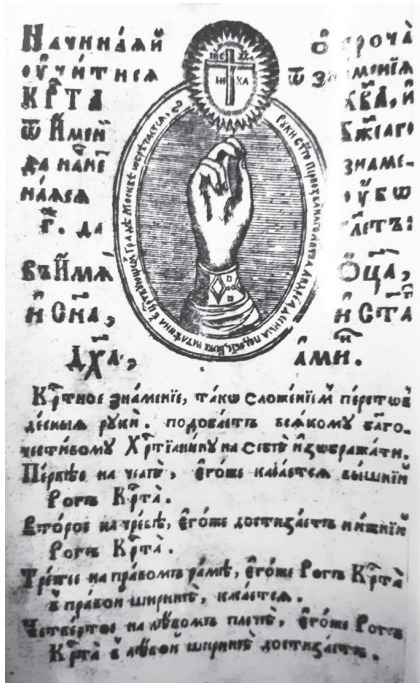 Начина́ѧй Ѻ҆троча̀
ᲂу҆чи́тисѧ ѿ за́менїѧ
Крⷭ҇та̀ и҆
ѿ И҆мени Бж҃їагѡ
да на́не знаме-
на́ѧсѧ ᲂу҆бѡ
г҃. да
въ И҆́мѧ Ѻ҆ц҃а̀,
и҆ Сн҃а, и҆ Ст҃а
Дх҃а̀, а҆ми́н.
І҆ис Хс
НИ КА
Крⷭ҇тное зна́менїе, та́кѡ сложе́нїемъ перстѡ́въ
десны́ѧ рꙋкѝ. подоба́етъ всѧ́комꙋ бл҃го-
чести́вомꙋ Хрⷭ҇тїа́нинꙋ на себѣ̀ и҆з̾ѡбража́ти.
Пе́рвѣе на челѣ̀, є҆го́же каса́етсѧ вы́шнїй
Рогъ Крⷭ҇та̀.
Второ́е на чре́вѣ, є҆го́же достиза́етъ ни́жнїй
Рогъ Крⷭ҇та̀.
Тре́тее на пра́вомъ ра́мѣ, є҆го́же Рогъ Крⷭ҇та̀
в̾ пра́вой ширинѣ̀, каса́етсѧ.
Четве́ртое на лѣ́вомъ плечѣ̀, є҆го́же Рогъ
Крⷭ҇та̀ в̾ лѣ́вой ширинѣ̀ достиза́етъ.